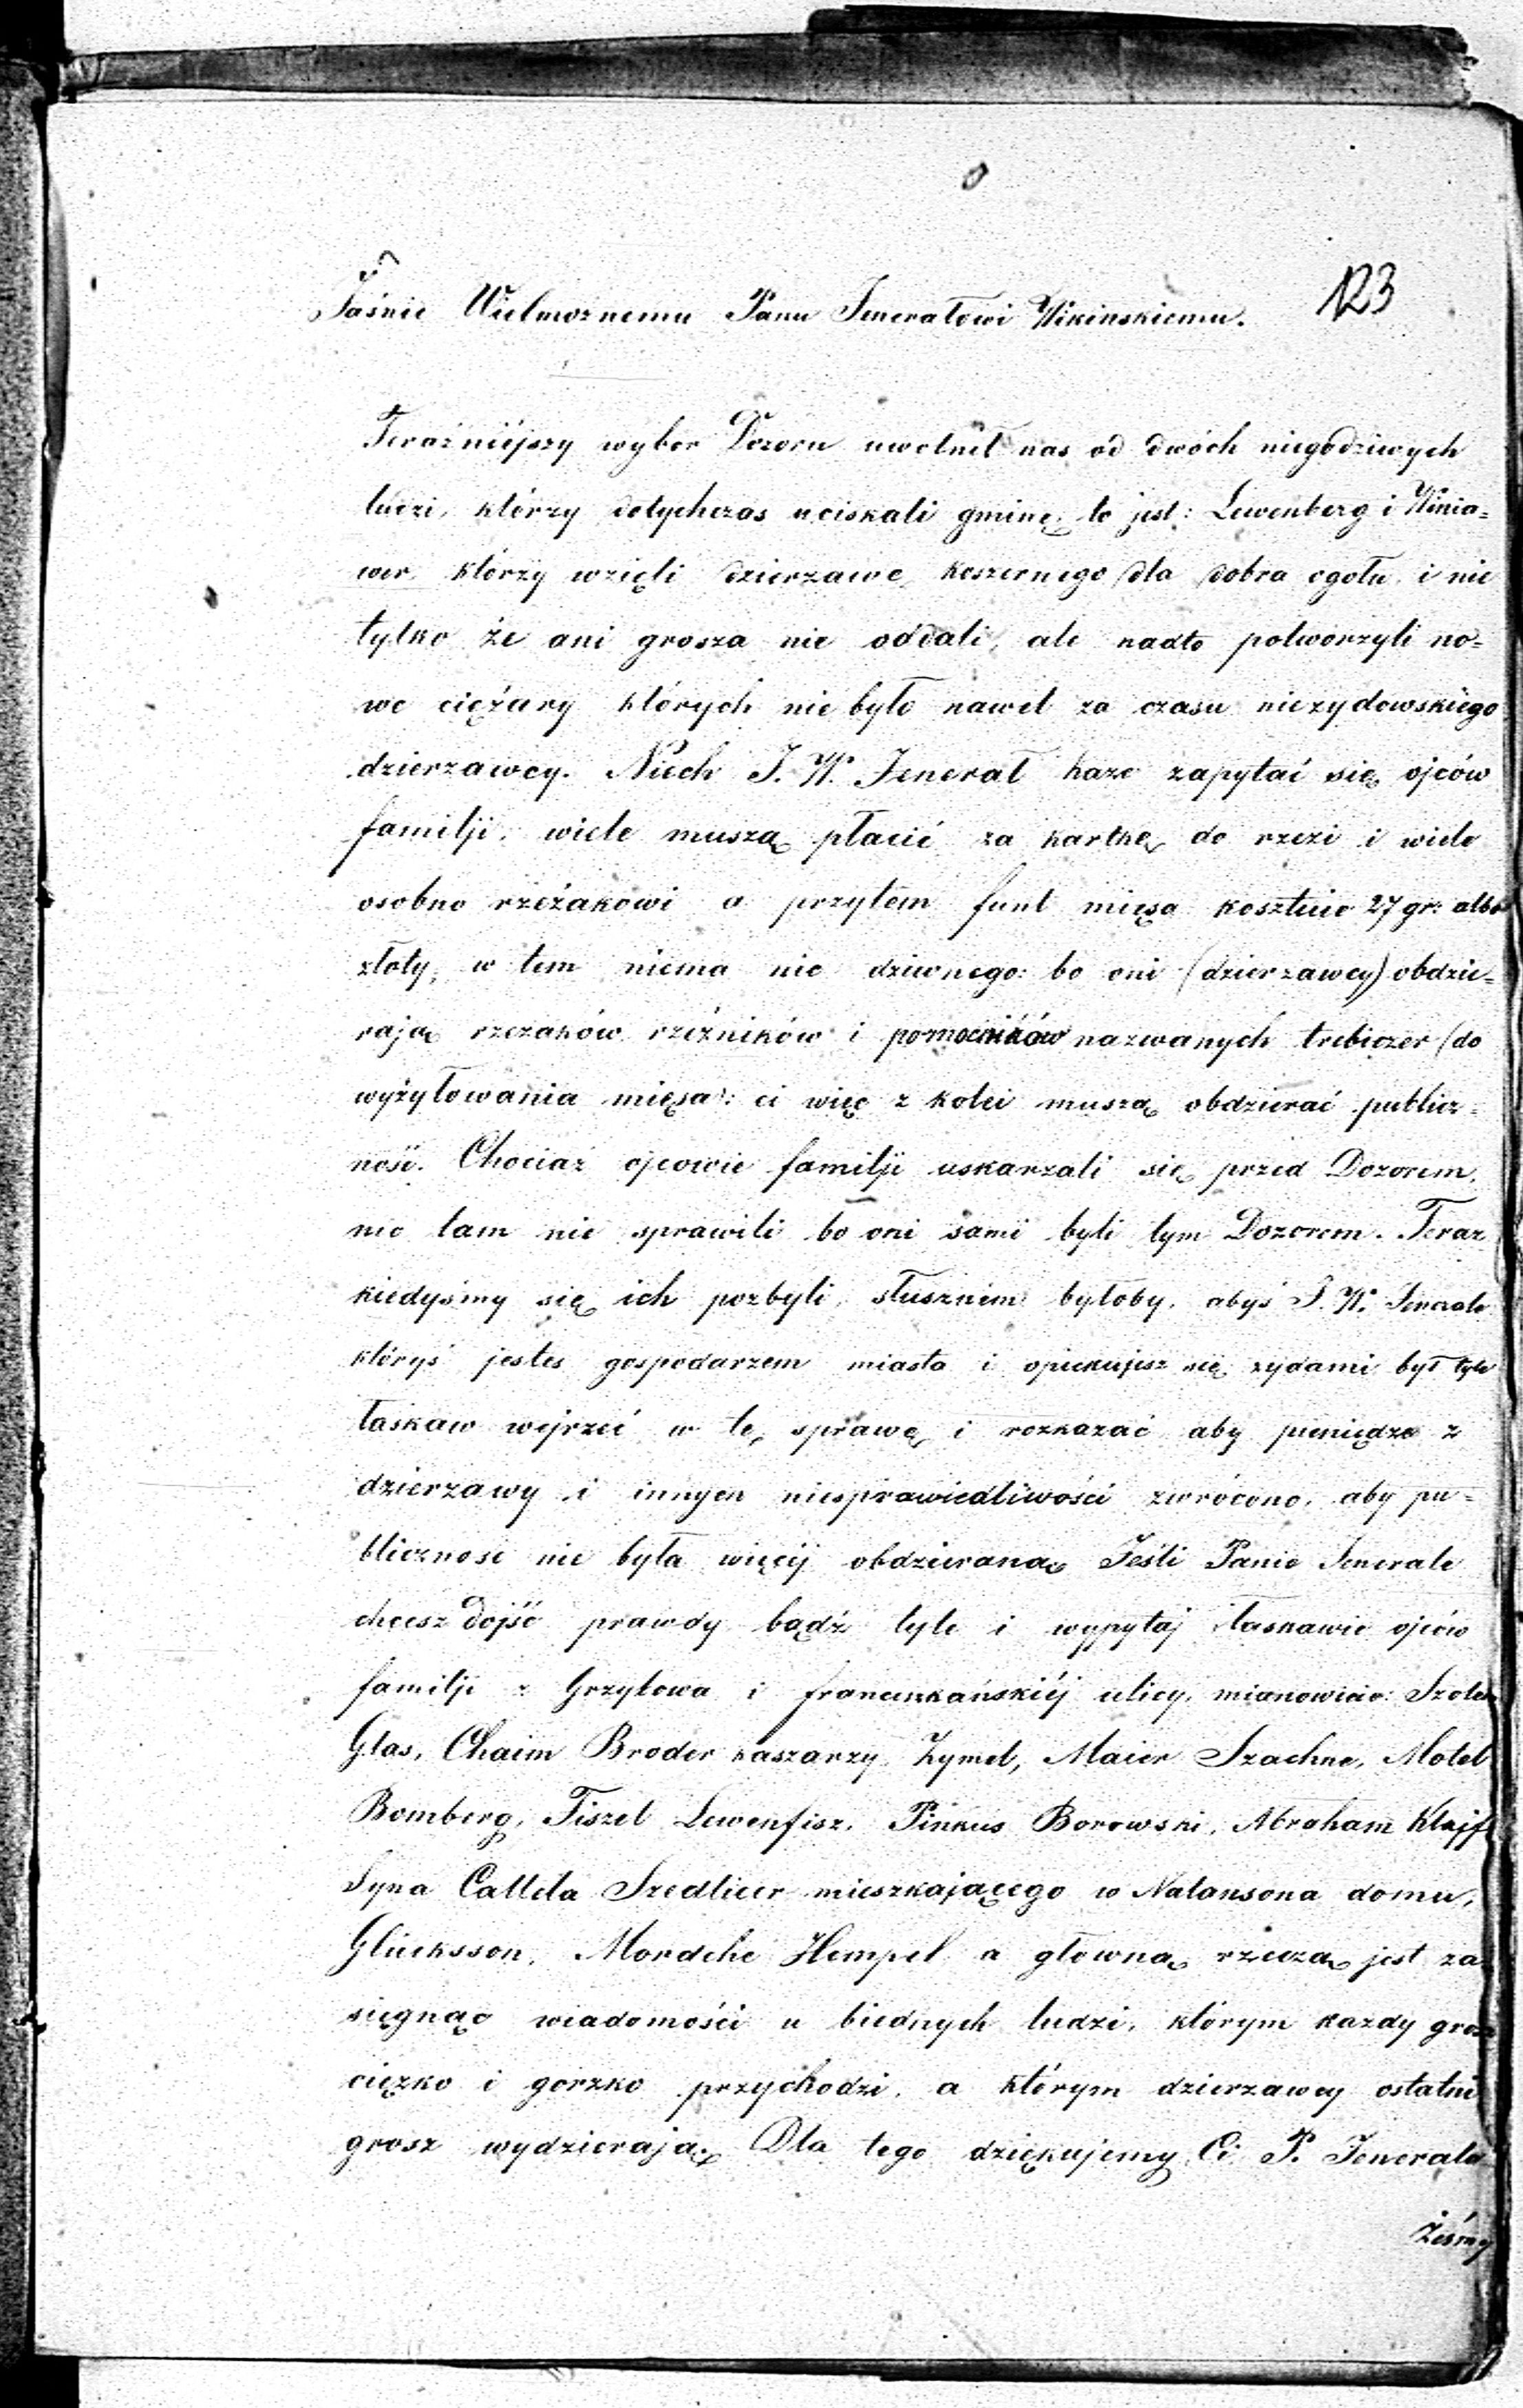 123
Jaśnie Wielmożnemu Panu Jenerałowi Wikinskiemu.
Teraźniéjszy wybor Dozoru uwolnił nas od dwóch niegodziwych
ludzi, którzy dotychczas uciskali gminę, to jest: Lewenberg i Winia=
wer, którzy wzięli dzierzawe koszernego dla dobra ogołu i nie
tylko że ani grosza nie oddali, ale nadto potworzyli no=
we ciężary których nie było nawet za czasu nieżydowskiego
dzierzawcy. Niech J. W. Jenerał każe zapytać się ojców
familji, wiele muszą płacić za kartkę do rzezi i wiele
osobno rzeżakowi a przytém funt mięsa kosztuie 27 gr: albo
złoty, w tem niema nic dziwnego: bo oni (dzierzawcy) obdzie=
rają rzezaków rzeźników i pomocników nazwanych trebiczer (do
wyżyłowania mięsa): ci więc z kolei muszą obdzierać publicz=
ność. Chociaż ojcowie familji uskarzali się przed Dozorem,
nic tam nie sprawili bo oni sami byli tym Dozorem. Teraz
kiedyśmy się ich pozbyli, słusznem byłoby, abyś J. W. Jenerale
któryś jestes gospodarzem miasta i opiekujesz się zydami był tyle
łaskaw wejrzeć w tę sprawę i rozkazać aby pieniądze z
dzierzawy i innych niesprawiedliwości zwrócono, aby pu=
bliczność nie była więcéj obdzieraną. Jeśli Panie Jenerale
chcesz dojść prawdy bądź tyle i wypytaj łaskawie ojców
familji z Grzybowa i franciszkańskiéj ulicy, mianowicie:
Glas, Chaim Broder kaszarzy, Zymel, Maier Szachne, Motel
Bomberg, Fiszel Lewenfisz, Pinkus Borowski, Abraham Klajf
Syna Callela Szedlicer mieszkającego w Natansona domu,
Glücksson, Mordche Hempel a główną rzeczą jest za=
sięgnąć wiadomości u biednych ludzi, którym każdy grosz
ciężko i gorzko przychodzi, a którym dzierzawcy ostatni
grosz wydzierają. Dla tego dziękujemy Ci P. Jenerale
żeśmy